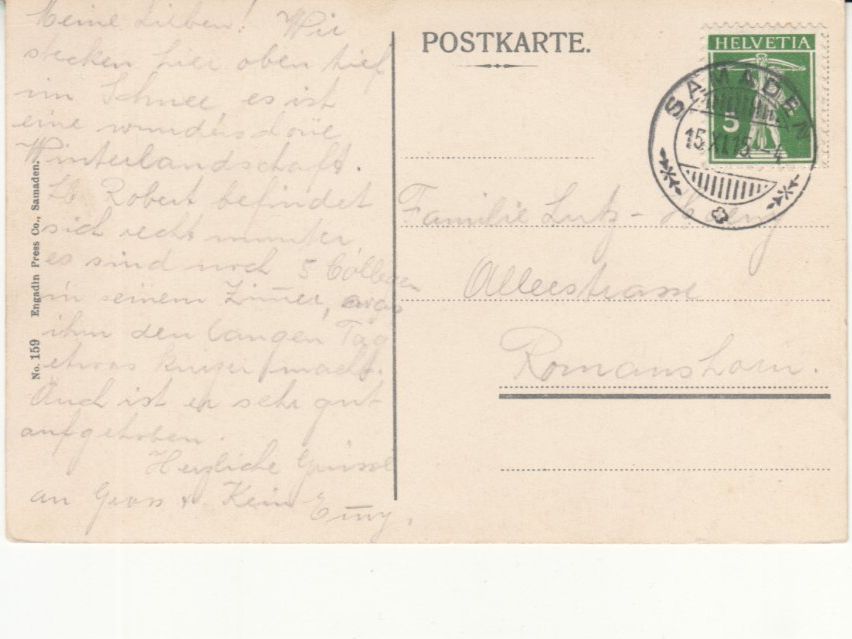 Meine Lieben! Wir
stecken hier oben tief
im Schnee es ist
eine wunderschöne
Winterlandschaft.
Lb Robert befindet
sich recht munter
es sind noch 5 Collegen
in seinem Zimmer, was
ihm den langen Tag
etwas kurzer macht.
Auch ist er sehr gut
aufgehoben.
Herzliche Grüsse
an Gross & Klein
Emmy.
No. 159 Engadin Press Co., Samaden.
POSTKARTE.
HELVETIA
5
SAMADEN
15.XI.15.-4
Familie Lutz-
Alleestrasse
Romanshorn.